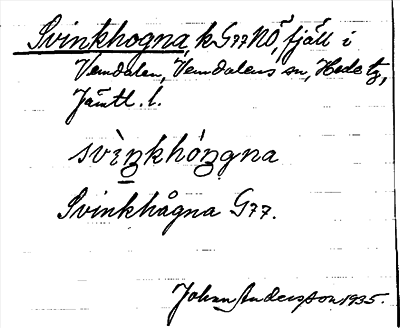 Svinkhogna, k G77 NÖ, fjäll i
Vemdalen, Vemdalens sn, Hede tg,
Jämtl. l.
svìŋkhóŋgna
Svinkhågna G77.
Johan Andersson 1935.